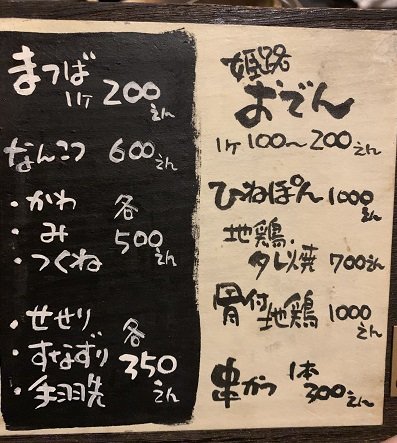 まつば
1ケ 200えん
なんこつ 600えん
・かわ 各
・み 500えん
・つくね
・せせり 各
・すなずり 350えん
・手羽先
姫路
おでん
1ケ 100〜200えん
ひねぽん 1000えん
地鶏
タレ焼 700えん
骨付地鶏 1000えん
串かつ 1本 300えん